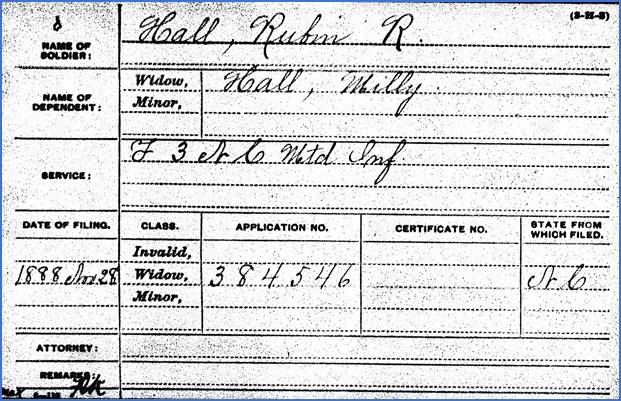 (3-H-3)
NAME OF SOLDIER: Hall, Rubin R.
NAME OF DEPENDENT: Widow, Hall, Milly
Minor,
SERVICE: F 3 N C Mtd Inf
DATE OF FILING. CLASS. APPLICATION NO. CERTIFICATE NO. STATE FROM WHICH FILED.
Invalid,
1888 Nov 28 Widow, 384546 N C
Minor,
ATTORNEY:
REMARKS: